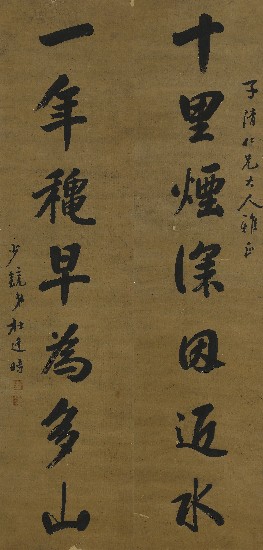 子清仁兄大人雅正
十里煙深因近水
一年穐早為多山
少鏡弟杜逢時